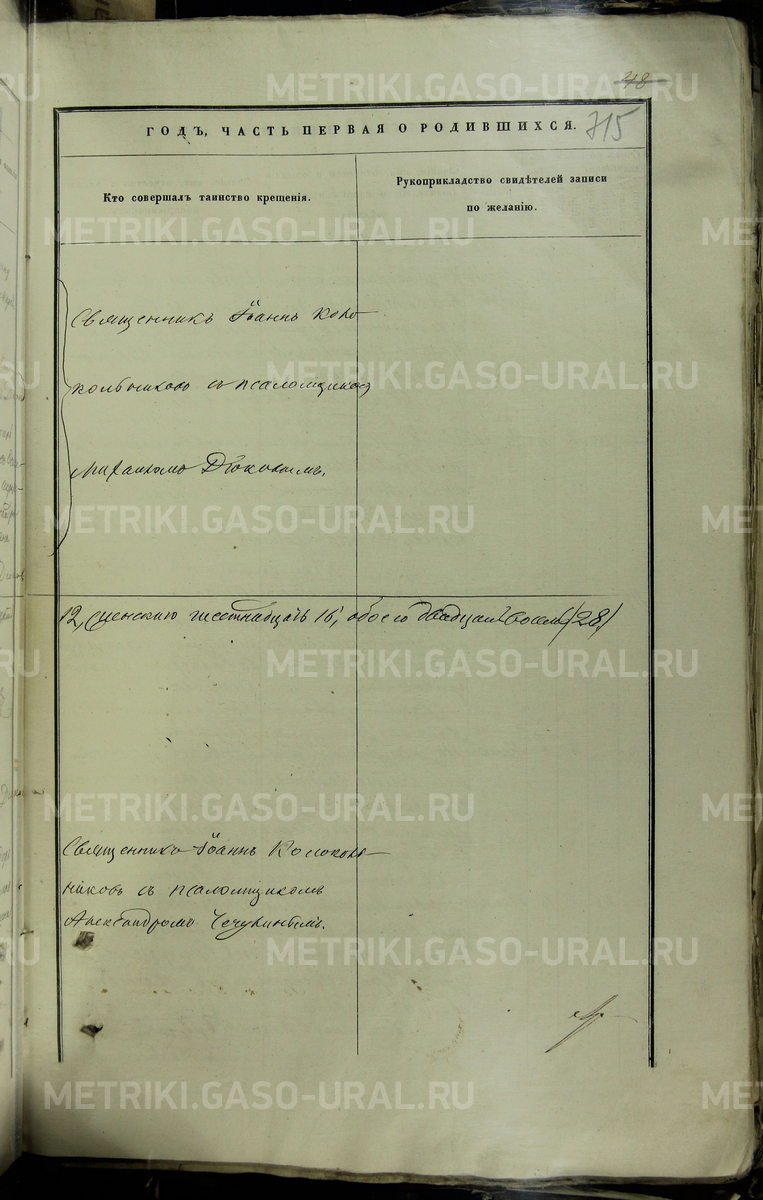 48
715
ГОДЪ, ЧАСТЬ ПЕРВАЯ О РОДИВШИХСЯ.
Кто совершалъ таинство крещенія.
Рукоприкладство свидѣтелей записи
по желанію.
Священникъ Іоаннъ Коло
кольниковъ съ псаломщикомъ
Михаиломъ
12, женскаго шестнадцать 16, обоего двадцать восемь (28)
Священникъ Іоаннъ Колоколь
никовъ съ псаломщикомъ
Александромъ Чечулинымъ.
METRIKI.GASO-URAL.RU